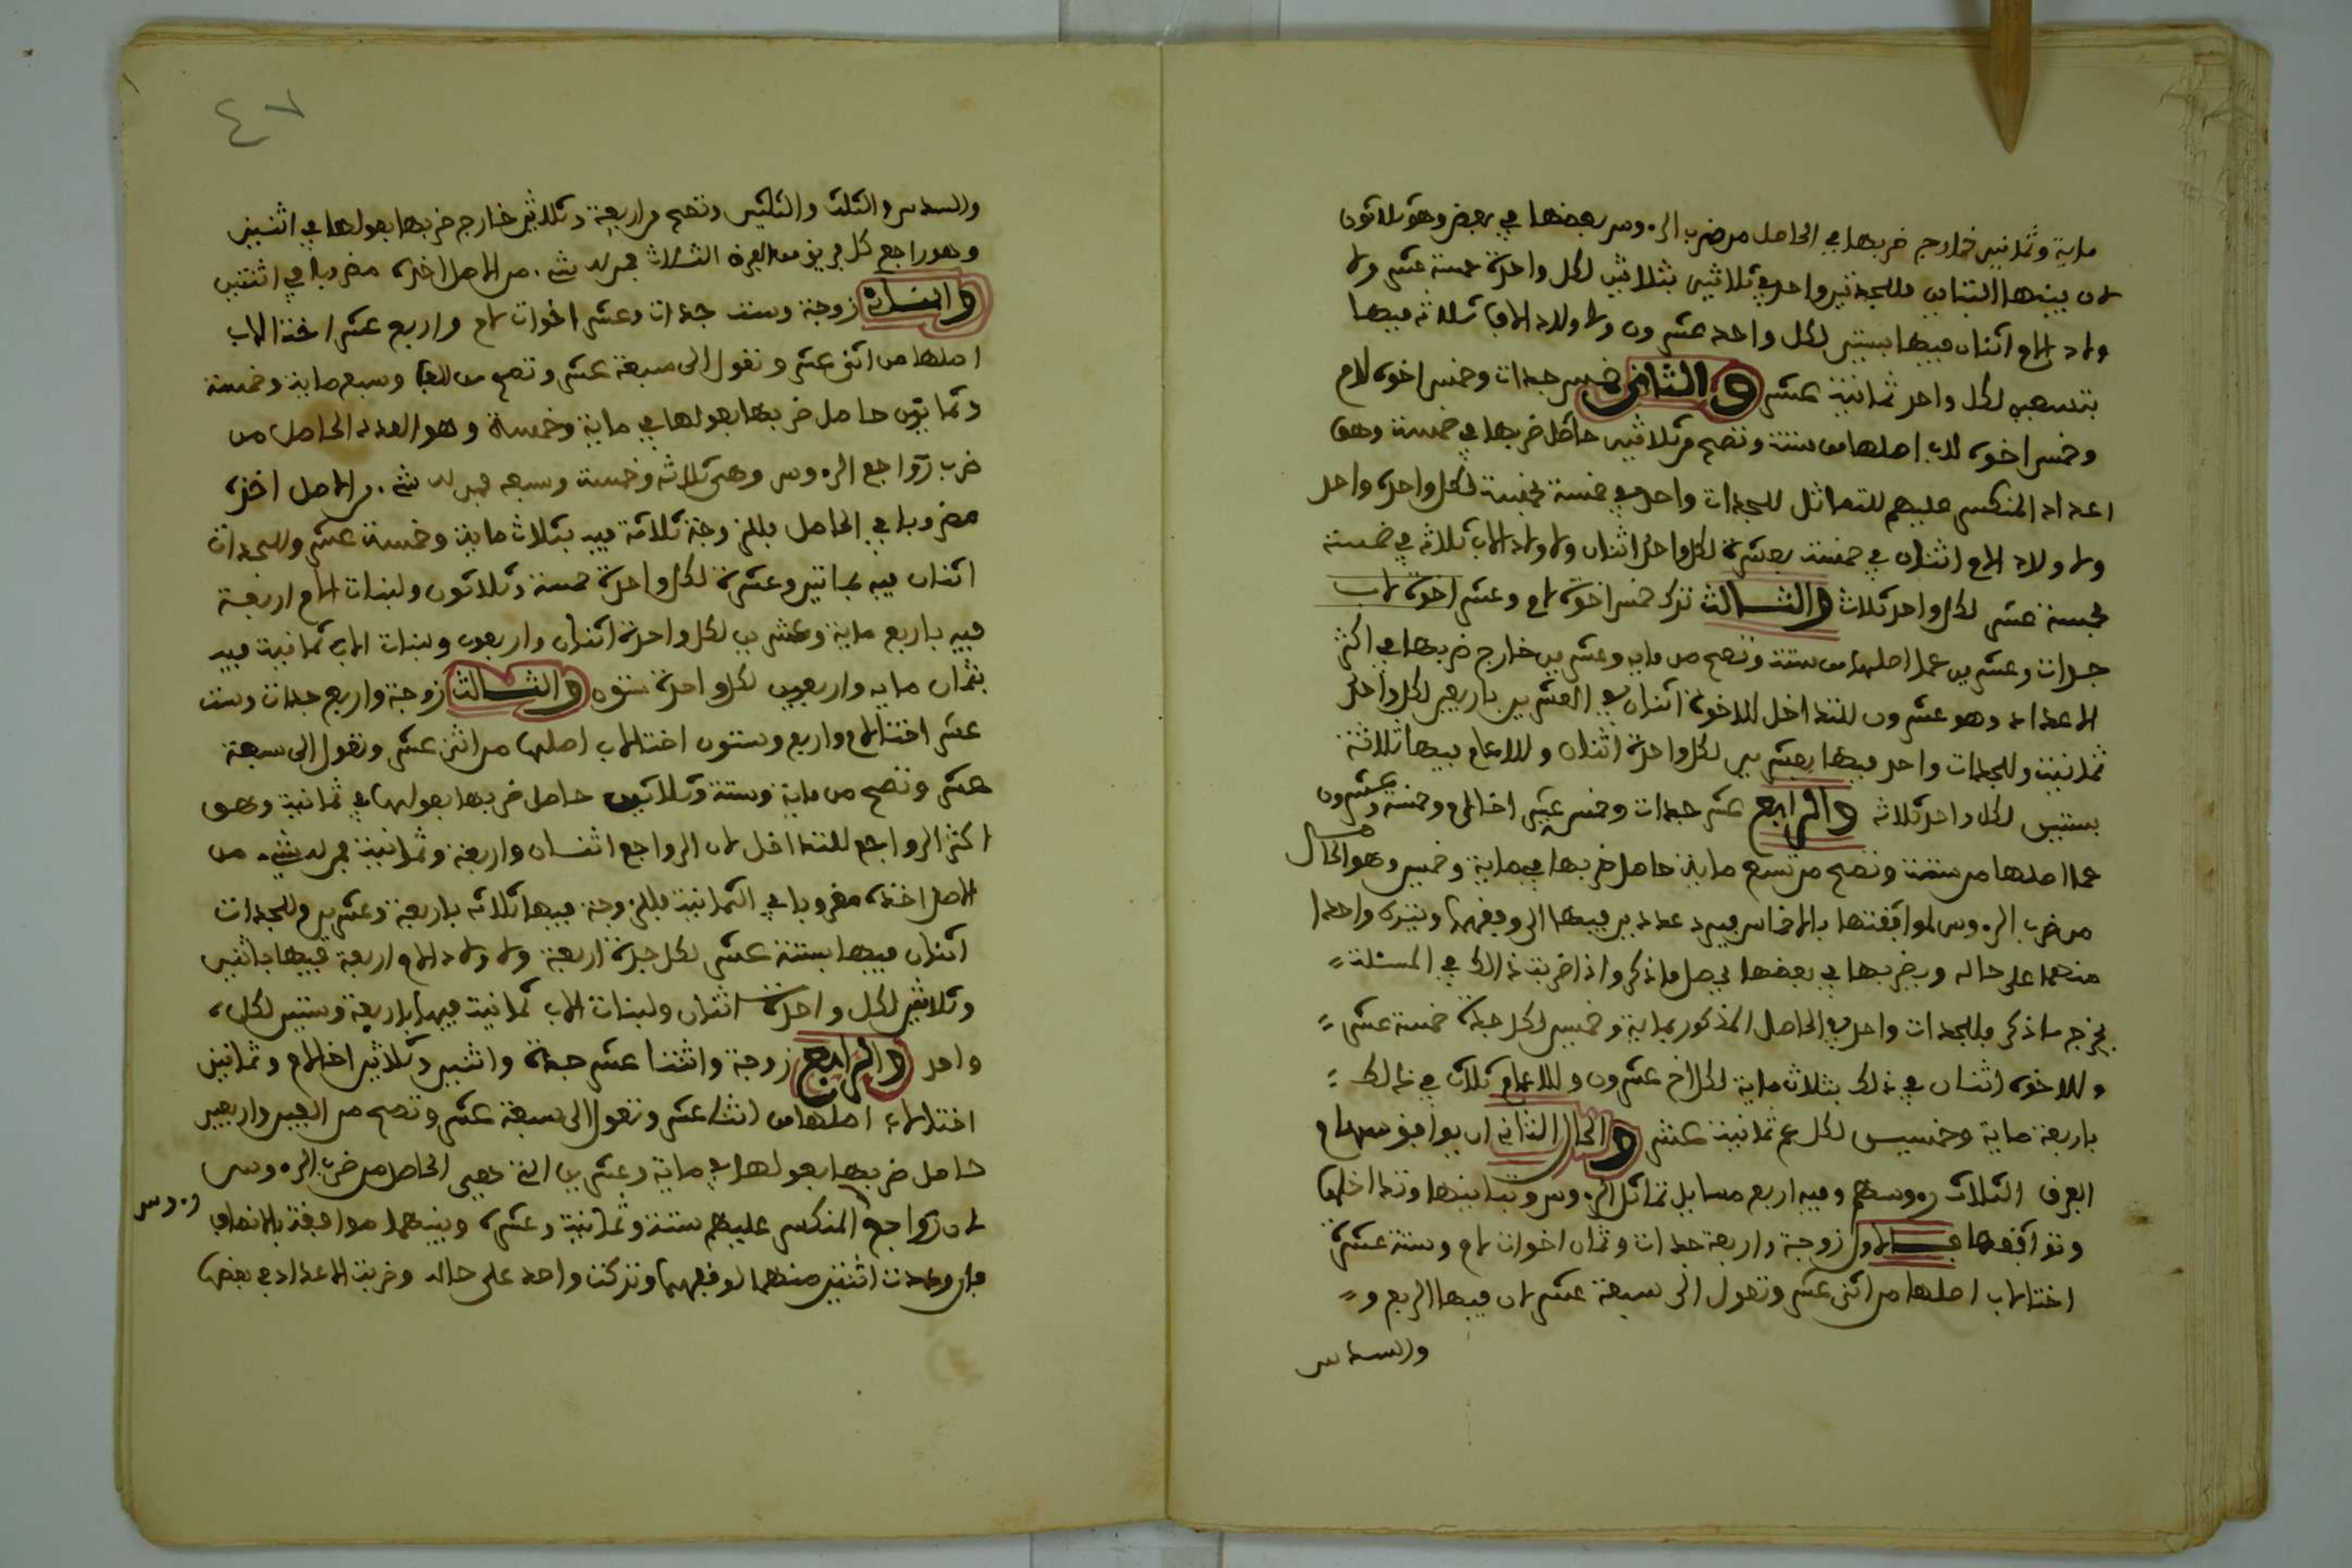 ماية وثمانين خارج ضربها في الحاصل من ضرب الرءوس بعضها في بعض وهو ثلاثون
لان بينها التباين فللجدتين واحد في ثلاثين بثلاثين لكل واحدة خمسة عشر ولا
ولاد الام اثنان فيها بستين لكل واحد عشرون ولاولاد الاب ثلاثة فيها
بتسعين لكل واحد ثمانية عشر والثاني خمس جدات وخمس اخوة لام
وخمس اخوة لاب اصلها من ستة وتصح من ثلاثين حاصل ضربها في خمسة وهو
اعداد المنكسر عليهم للتماثل للجدات واحد في خمسة بخمسة لكل واحدة واحد
ولاولاد الام اثنان في خمسة بعشرة لكل واحد اثنان ولاولاد الاب ثلاثة في خمسة
بخمسة عشر لكل واحد ثلاث والثالث ترك خمس اخوة لام وعشر اخوة لاب
جدات وعشرين عما اصلها من ستة وتصح من ماية وعشرين خارج ضربها في اكثر
الاعداد وهو عشرون للتداخل للاخوة اثنان في العشرين باربعين لكل واحد
ثمانية وللجدات واحد فيها بعشرين لكل واحدة اثنان وللاعمام فيها ثلاثة
بستين لكل واحد ثلاثة والرابع عشر جدات وخمس عشر اخا لام وخمسة وعشرون
عما اصلها من ستة وتصح من تسع ماية حاصل ضربها في ماية وخمسين وهو الحاصل
من ضرب الرءوس لموافقتها بالاخماس فيرد عددين فيها الى وفقهما ويترك واحدا
منهما على حاله ويضربها في بعضها يحصل ما ذكر واذا ضربت ذالك في المسئلة
يخرج ما ذكر فللجدات واحد في الحاصل المذكور بماية وخمسين لكل جدة خمسة عشر
وللاخوة اثنان في ذلك بثلاث ماية لكل اخ عشرون وللاعمام ثلاث في ذالك
باربعة ماية وخمسين لكل عم ثمانية عشر والحال الثاني ان يوافق سهام
الفرق الثلاث رءوسهم وفيه اربع مسايل تماثل الرءوس وتباينها وتداخلها
وتوافقها فالاول زوجة واربعة جدات وثمان اخوات لام وستة عشر
اختا لاب اصلها من اثنى عشر وتعول الى سبعة عشر لان فيها الربع و
والسدس
٤٧
والسدس والثلث والثلثين وتصح من اربعة وثلاثين خارج ضربها بعولها في اثنين
وهو راجع كل فريق من الفرق الثلاث فمن له شيء من الاصل اخذه مضروبا في اثنين
والثاني زوجة وست جدات وعشر اخوات لام واربع عشر اختا لاب
اصلها من اثنى عشر وتعول الى سبعة عشر وتصح من الف وسبع ماية وخمسة
وثمانين حاصل ضربها بعولها في ماية وخمسة وهو العدد الحاصل من
ضرب رواجع الرءوس وهي ثلاثة وخمسة وسبعة فمن له شيء من الاصل اخذه
مضروبا في الحاصل فللزوجة ثلاثة فيه بثلاث ماية وخمسة عشر وللجدات
اثنان فيه بماتين وعشرة لكل واحدة خمسة وثلاثون ولبنات الام اربعة
فيه باربع ماية وعشرين لكل واحدة اثنان واربعون ولبنات الاب ثمانية فيه
بثمان ماية واربعين لكل واحدة ستون والثالث زوجة واربع جدات وست
عشر اختا لام واربع وستون اختا لاب اصلها من اثنى عشر وتعول الى سبعة
عشر وتصح من ماية وستة وثلاثين حاصل ضربها بعولها في ثمانية وهو
اكثر الرواجع للتداخل لان الرواجع اثنان واربعة وثمانية فمن له شيء من
الاصل اخذه مضروبا في الثمانية فللزوجة فيها ثلاثة باربعة وعشرين وللجدات
اثنان فيها بستة عشر لكل جدة اربعة ولاولاد الام اربعة فيها باثنين
وثلاثين لكل واحدة اثنان ولبنات الاب ثمانية فيها باربعة وستين لكل
واحد والرابع زوجة واثنتا عشر جدة واثنين وثلاثين اخا لام وثمانين
اختا لاب اصلها من اثنا عشر وتعول الى سبعة عشر وتصح من الفين واربعين
حاصل ضربها بعولها في ماية وعشرين التي هي الحاصل من ضرب الرءوس
لان رواجع المنكسر عليهم ستة وثمانية وعشرة وبينهما موافقة بالانصاف
فان رددت اثنين منهما لوفقهما وتركت واحد على حاله وضربت الاعداد في بعضها